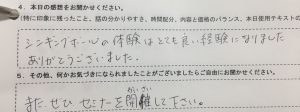 4．本日の感想をお聞かせください。
（特に印象に残ったこと、話の分かりやすさ、時間配分、内容と価格のバランス、本日使用テキストの
シンキングホールの体験はとても良い経験になりました
ありがとうございました。
5．その他、何かお気づきになられましたことがございましたらご自由にお聞かせください。
また ぜひ セミナーを開催して下さい。